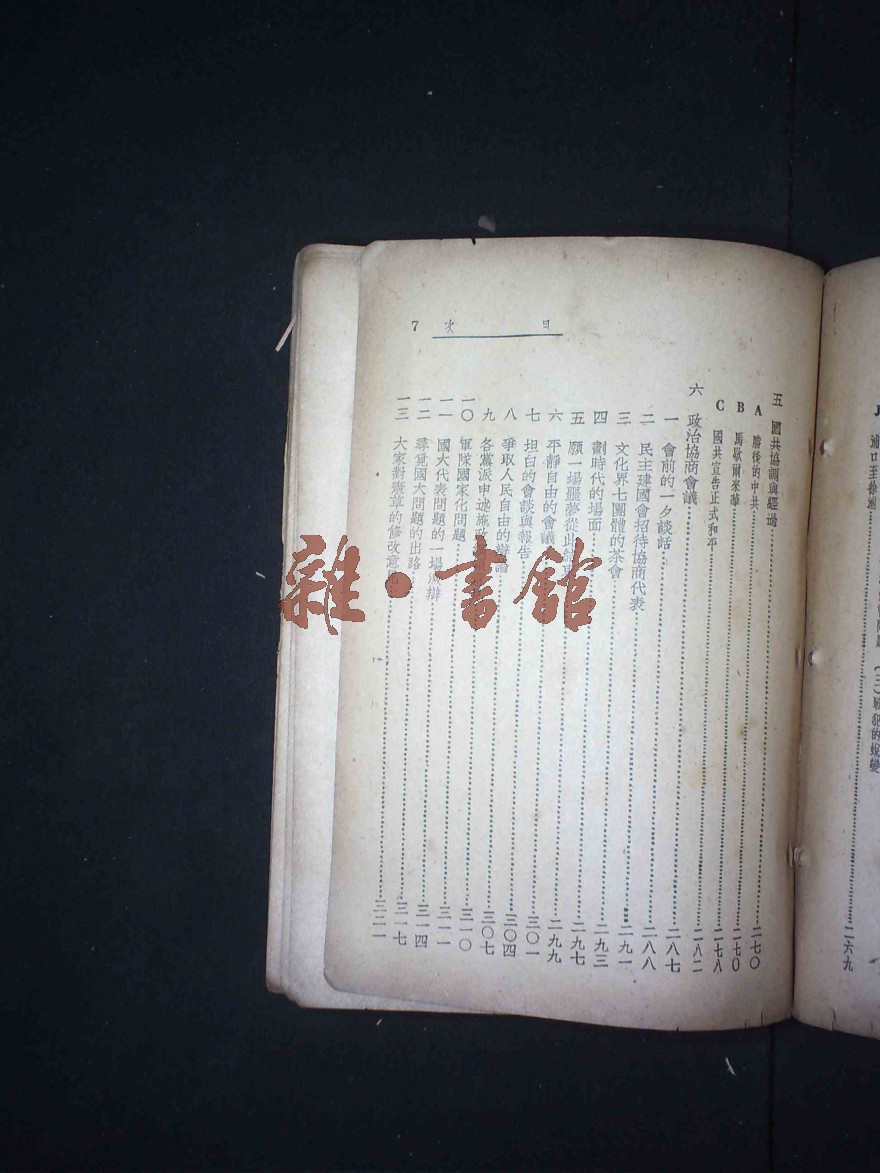 7 次 目
五 國共協調與經過……二七〇
A 勝後的中共……二七〇
B 馬歇爾來華……二七八
C 國共宣告正式和平……二八二
六 政治協商會議……二八七
一 會前的一夕談話……二八八
二 民主建國會招待協商代表……二九一
三 文化界七團體的茶會……二九三
四 劃時代的場面……二九七
五 願一場噩夢從此結束……二九九
六 平靜自由的會議……三〇一
七 坦白的會談與報告……三〇四
八 爭取人民自由的辯論……三〇七
九 各黨派申述施政……三一〇
一〇 軍隊國家化問題……三一一
一一 國大代表問題的一場激辯……三一四
一二 尋覓國大問題的出路……三一七
一三 大家對憲草的修改意……三二一
二六九
(三)戰犯的蛻變
雜·書館